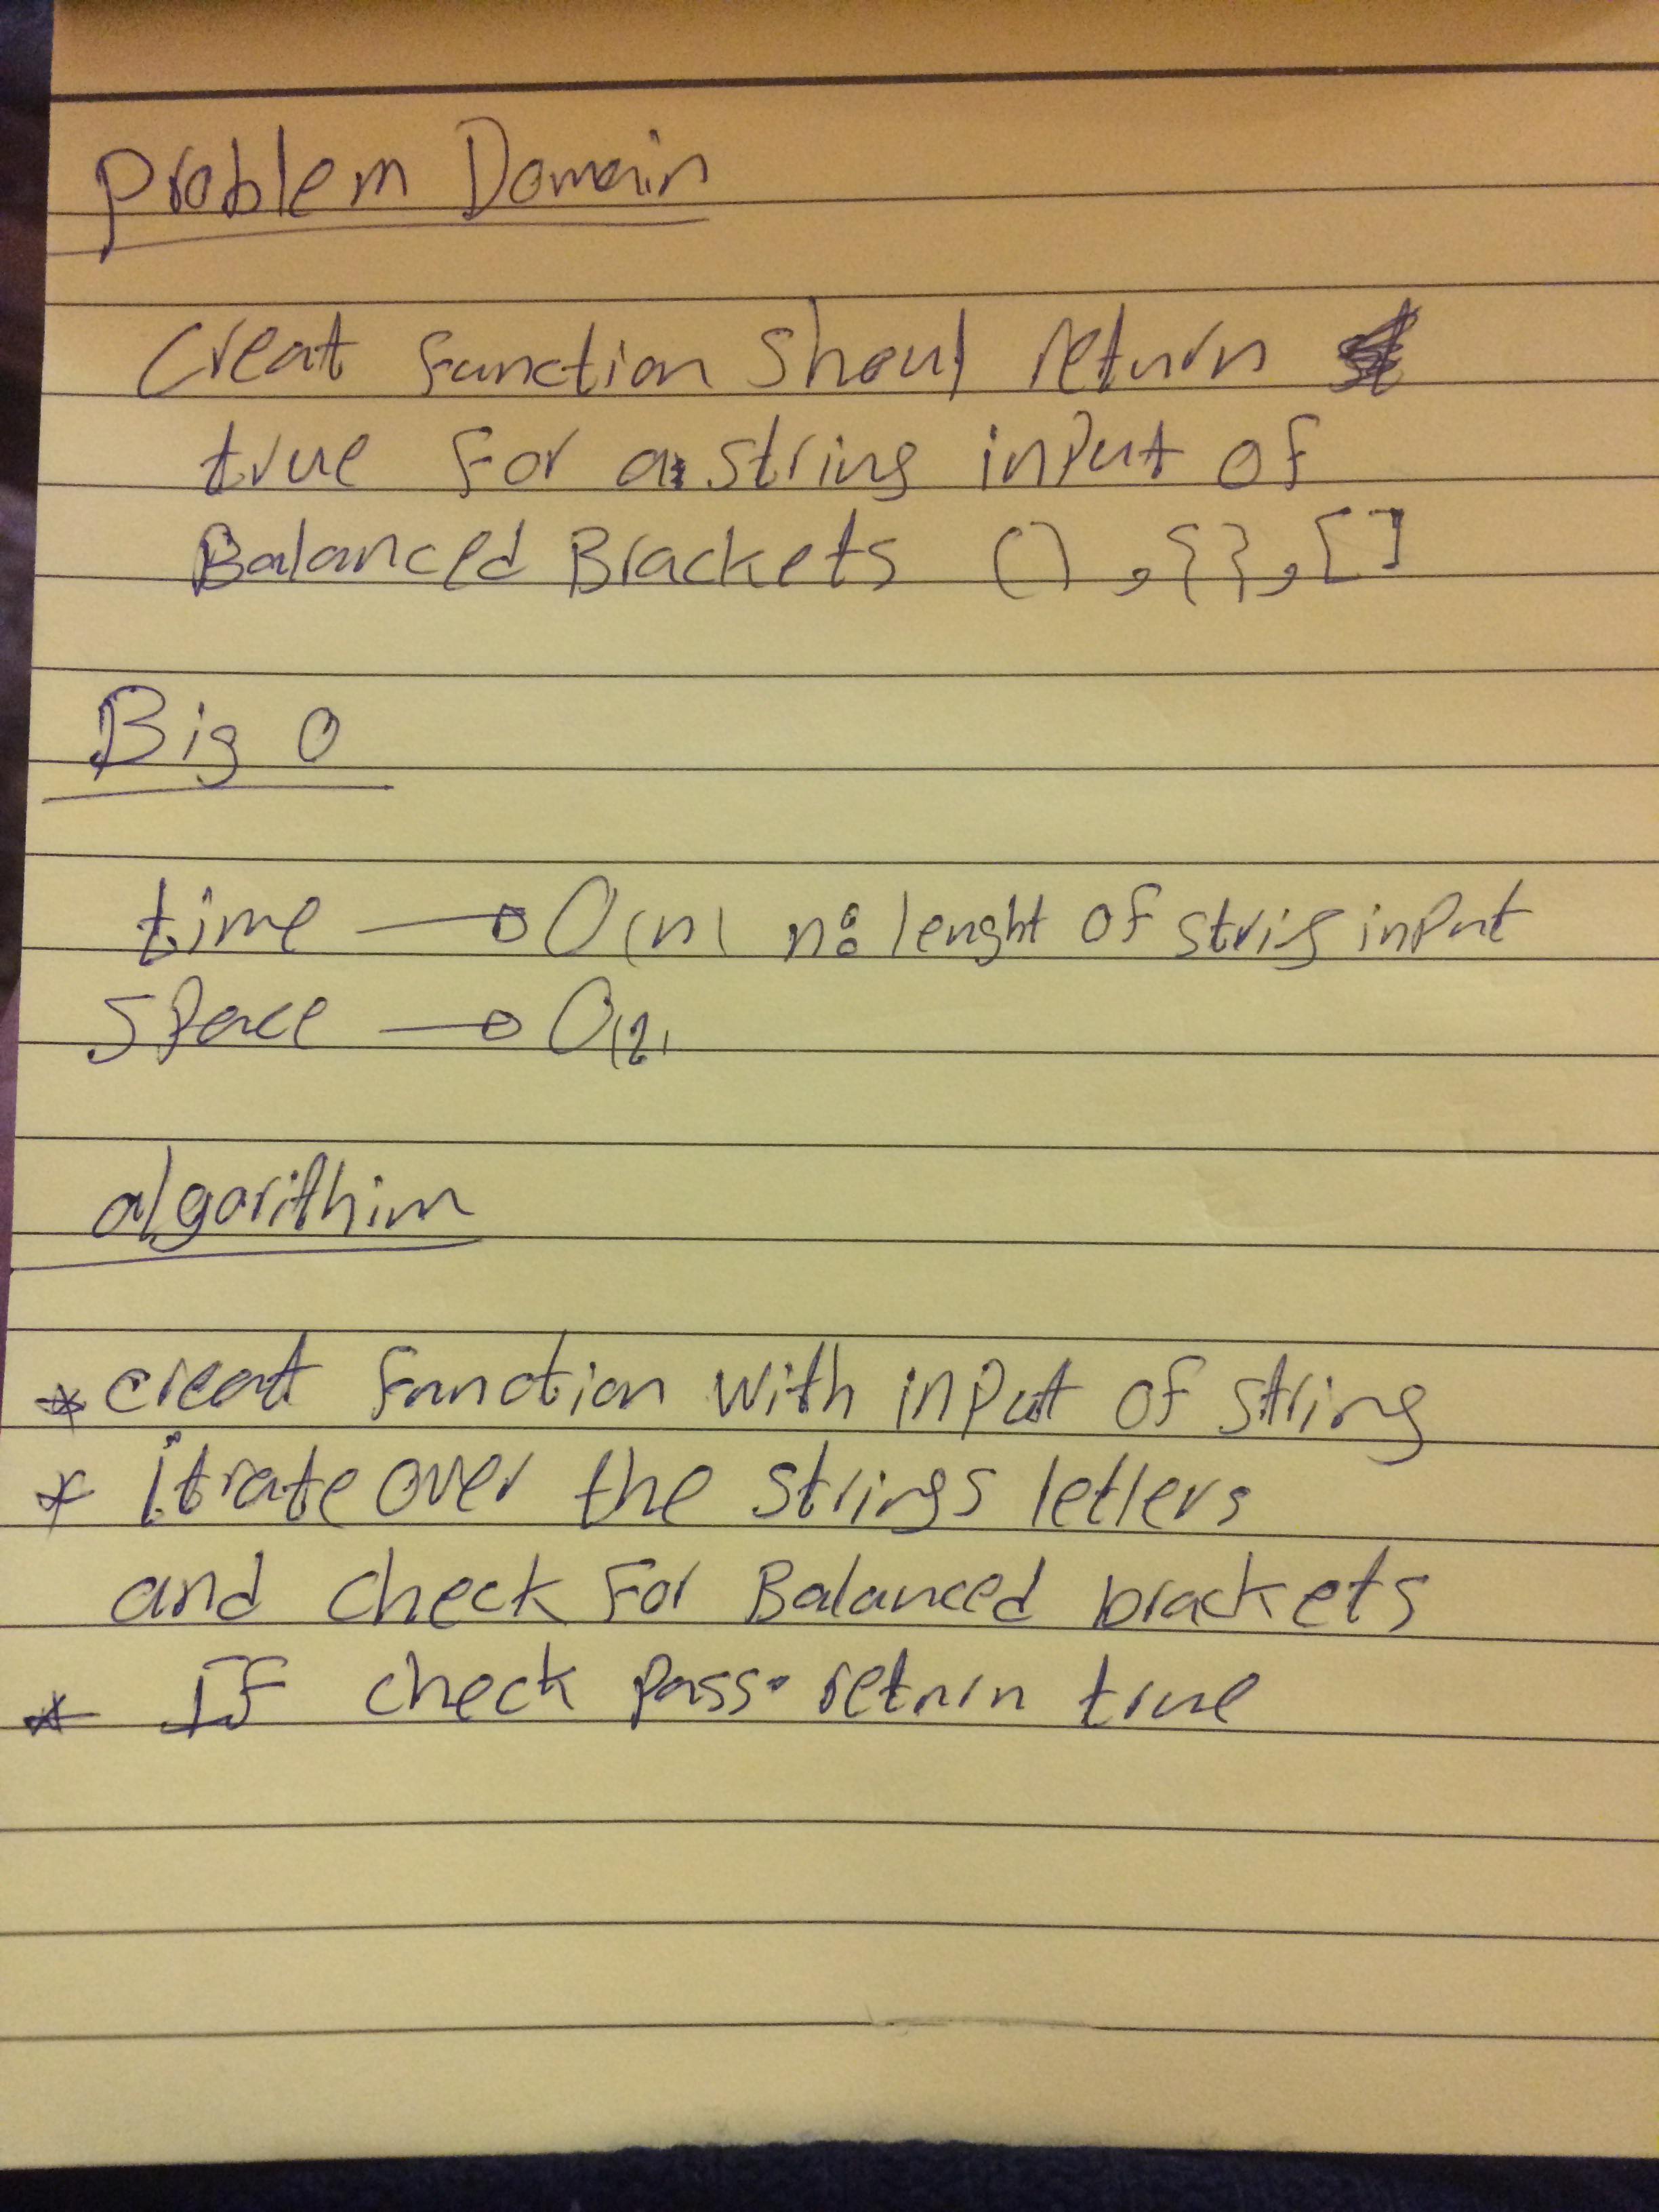 Problem Domain
Creat function Shoul return
true for a string input of
Balanced Brackets (), {}, []
Big O
time → O(n) n: lenght of string input
Space → O(2)
algorithim
* creat function with input of string
* itrate over the strings letters
and check For Balanced brackets
* IF check pass. return true